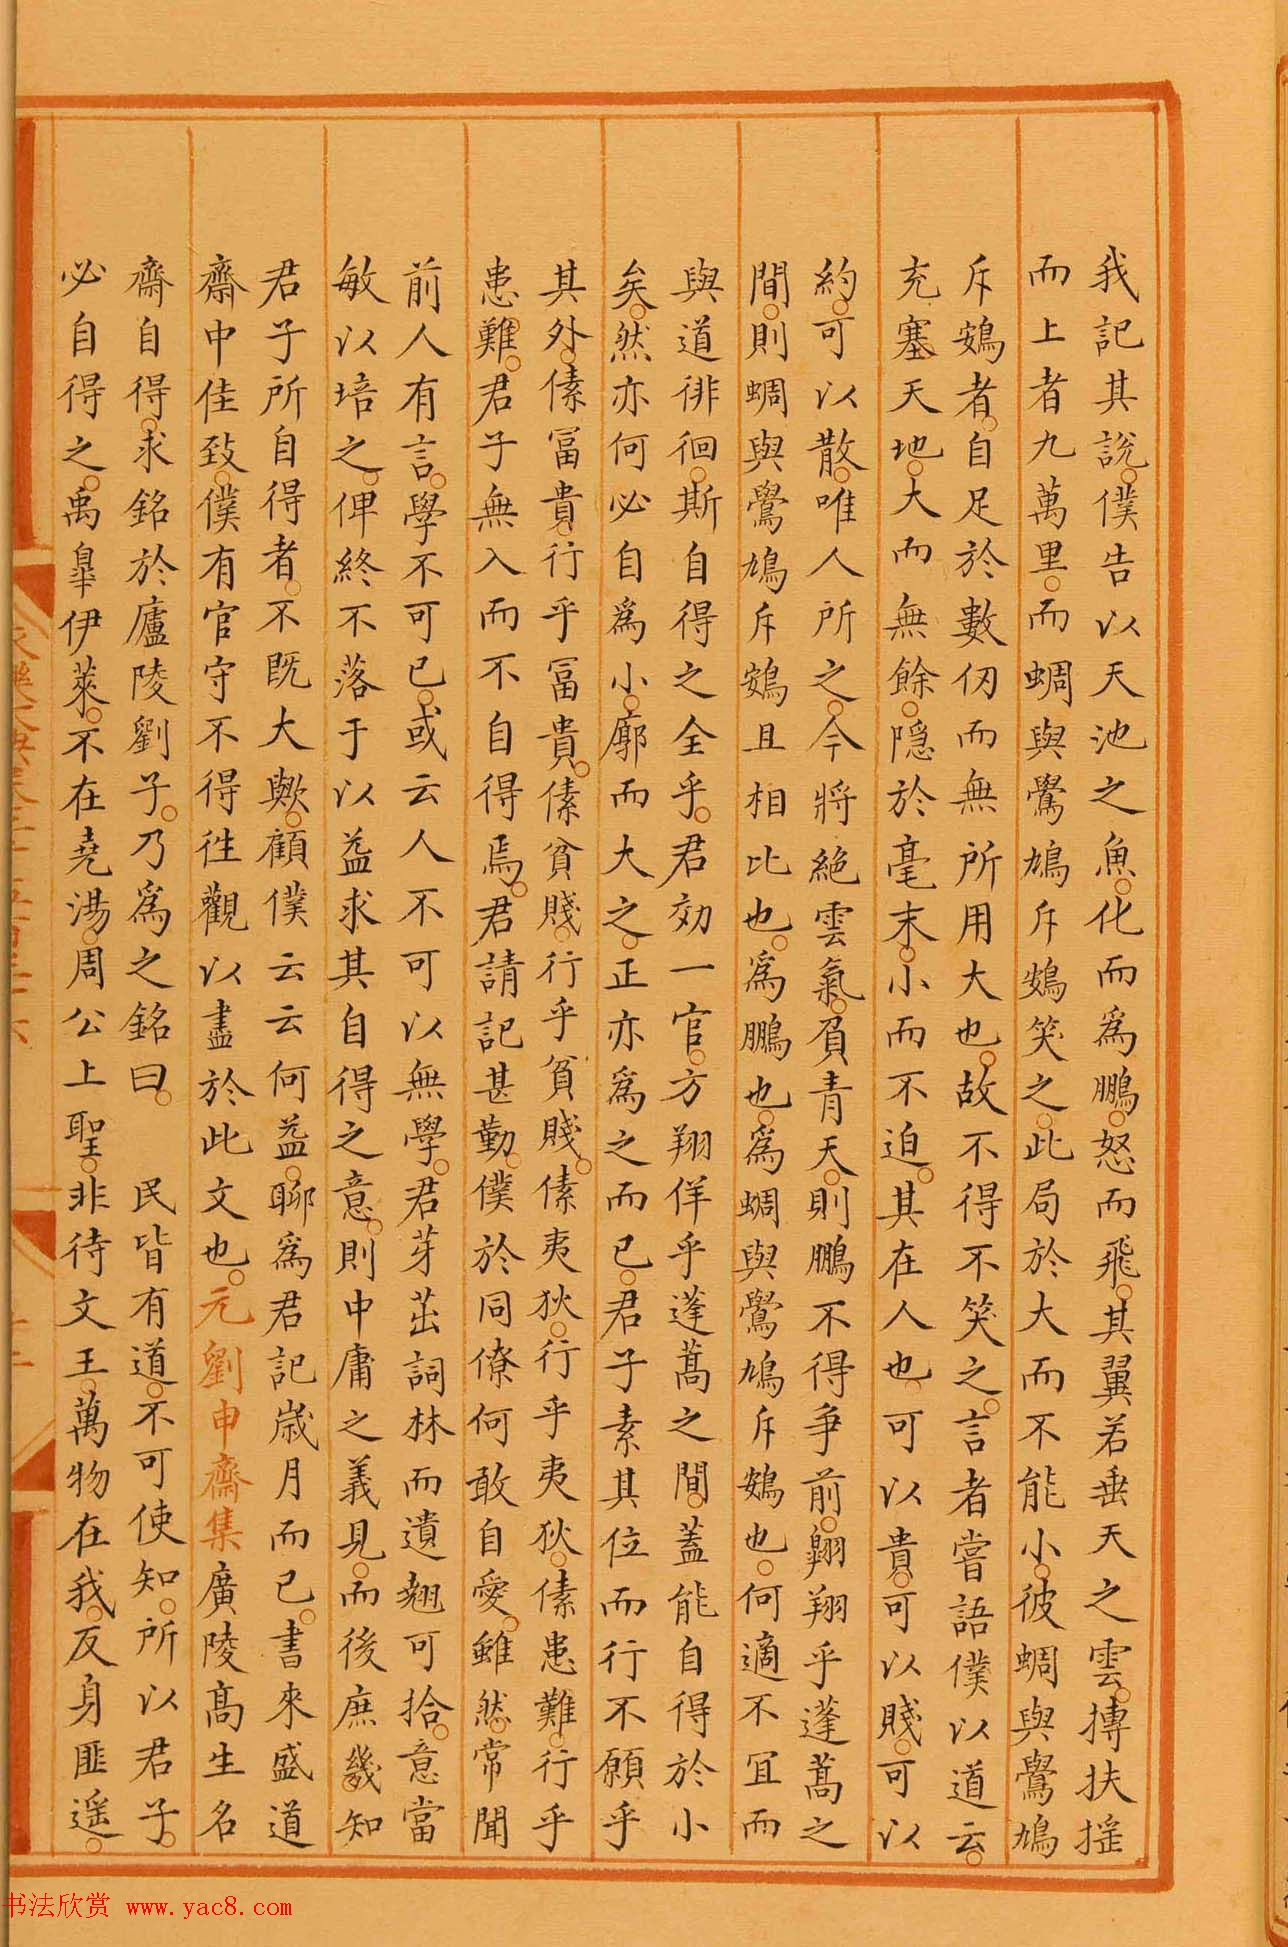 我記其說僕告以天池之魚化而為鵬怒而飛其翼若垂天之雲摶扶搖
而上者九萬里而蜩與鷽鳩斥鴳笑之此局於大而不能小彼蜩與鷽鳩
斥鴳者自足於數仞而無所用大也故不得不笑之言者嘗語僕以道云
充塞天地大而無餘隱於毫末小而不迫其在人也可以貴可以賤可以
約可以散唯人所之今將絕雲氣負青天則鵬不得爭前翱翔乎蓬蒿之
間則蜩與鷽鳩斥鴳且相比也為鵬也為蜩與鷽鳩斥鴳也何適不宜而
與道徘徊斯自得之全乎君効一官方翔佯乎蓬蒿之間蓋能自得於小
矣然亦何必自為小廓而大之正亦為之而已君子素其位而行不願乎
其外傃冨貴行乎冨貴傃貧賤行乎貧賤傃夷狄行乎夷狄傃患難行乎
患難君子無入而不自得焉君請記甚勤僕於同僚何敢自愛雖然常聞
前人有言學不可已或云人不可以無學君芽茁詞林而遺翹可拾意當
敏以培之俾終不落于以益求其自得之意則中庸之義見而後庶幾知
君子所自得者不既大歟顧僕云云何益聊為君記歲月而已書來盛道
齋中佳致僕有官守不得徃觀以盡於此文也元劉申齋集廣陵高生名
齋自得求銘於廬陵劉子乃為之銘曰　民皆有道不可使知所以君子
必自得之禹皐伊萊不在堯湯周公上聖非待文王萬物在我反身匪遥
书法欣赏 www.yac8.com